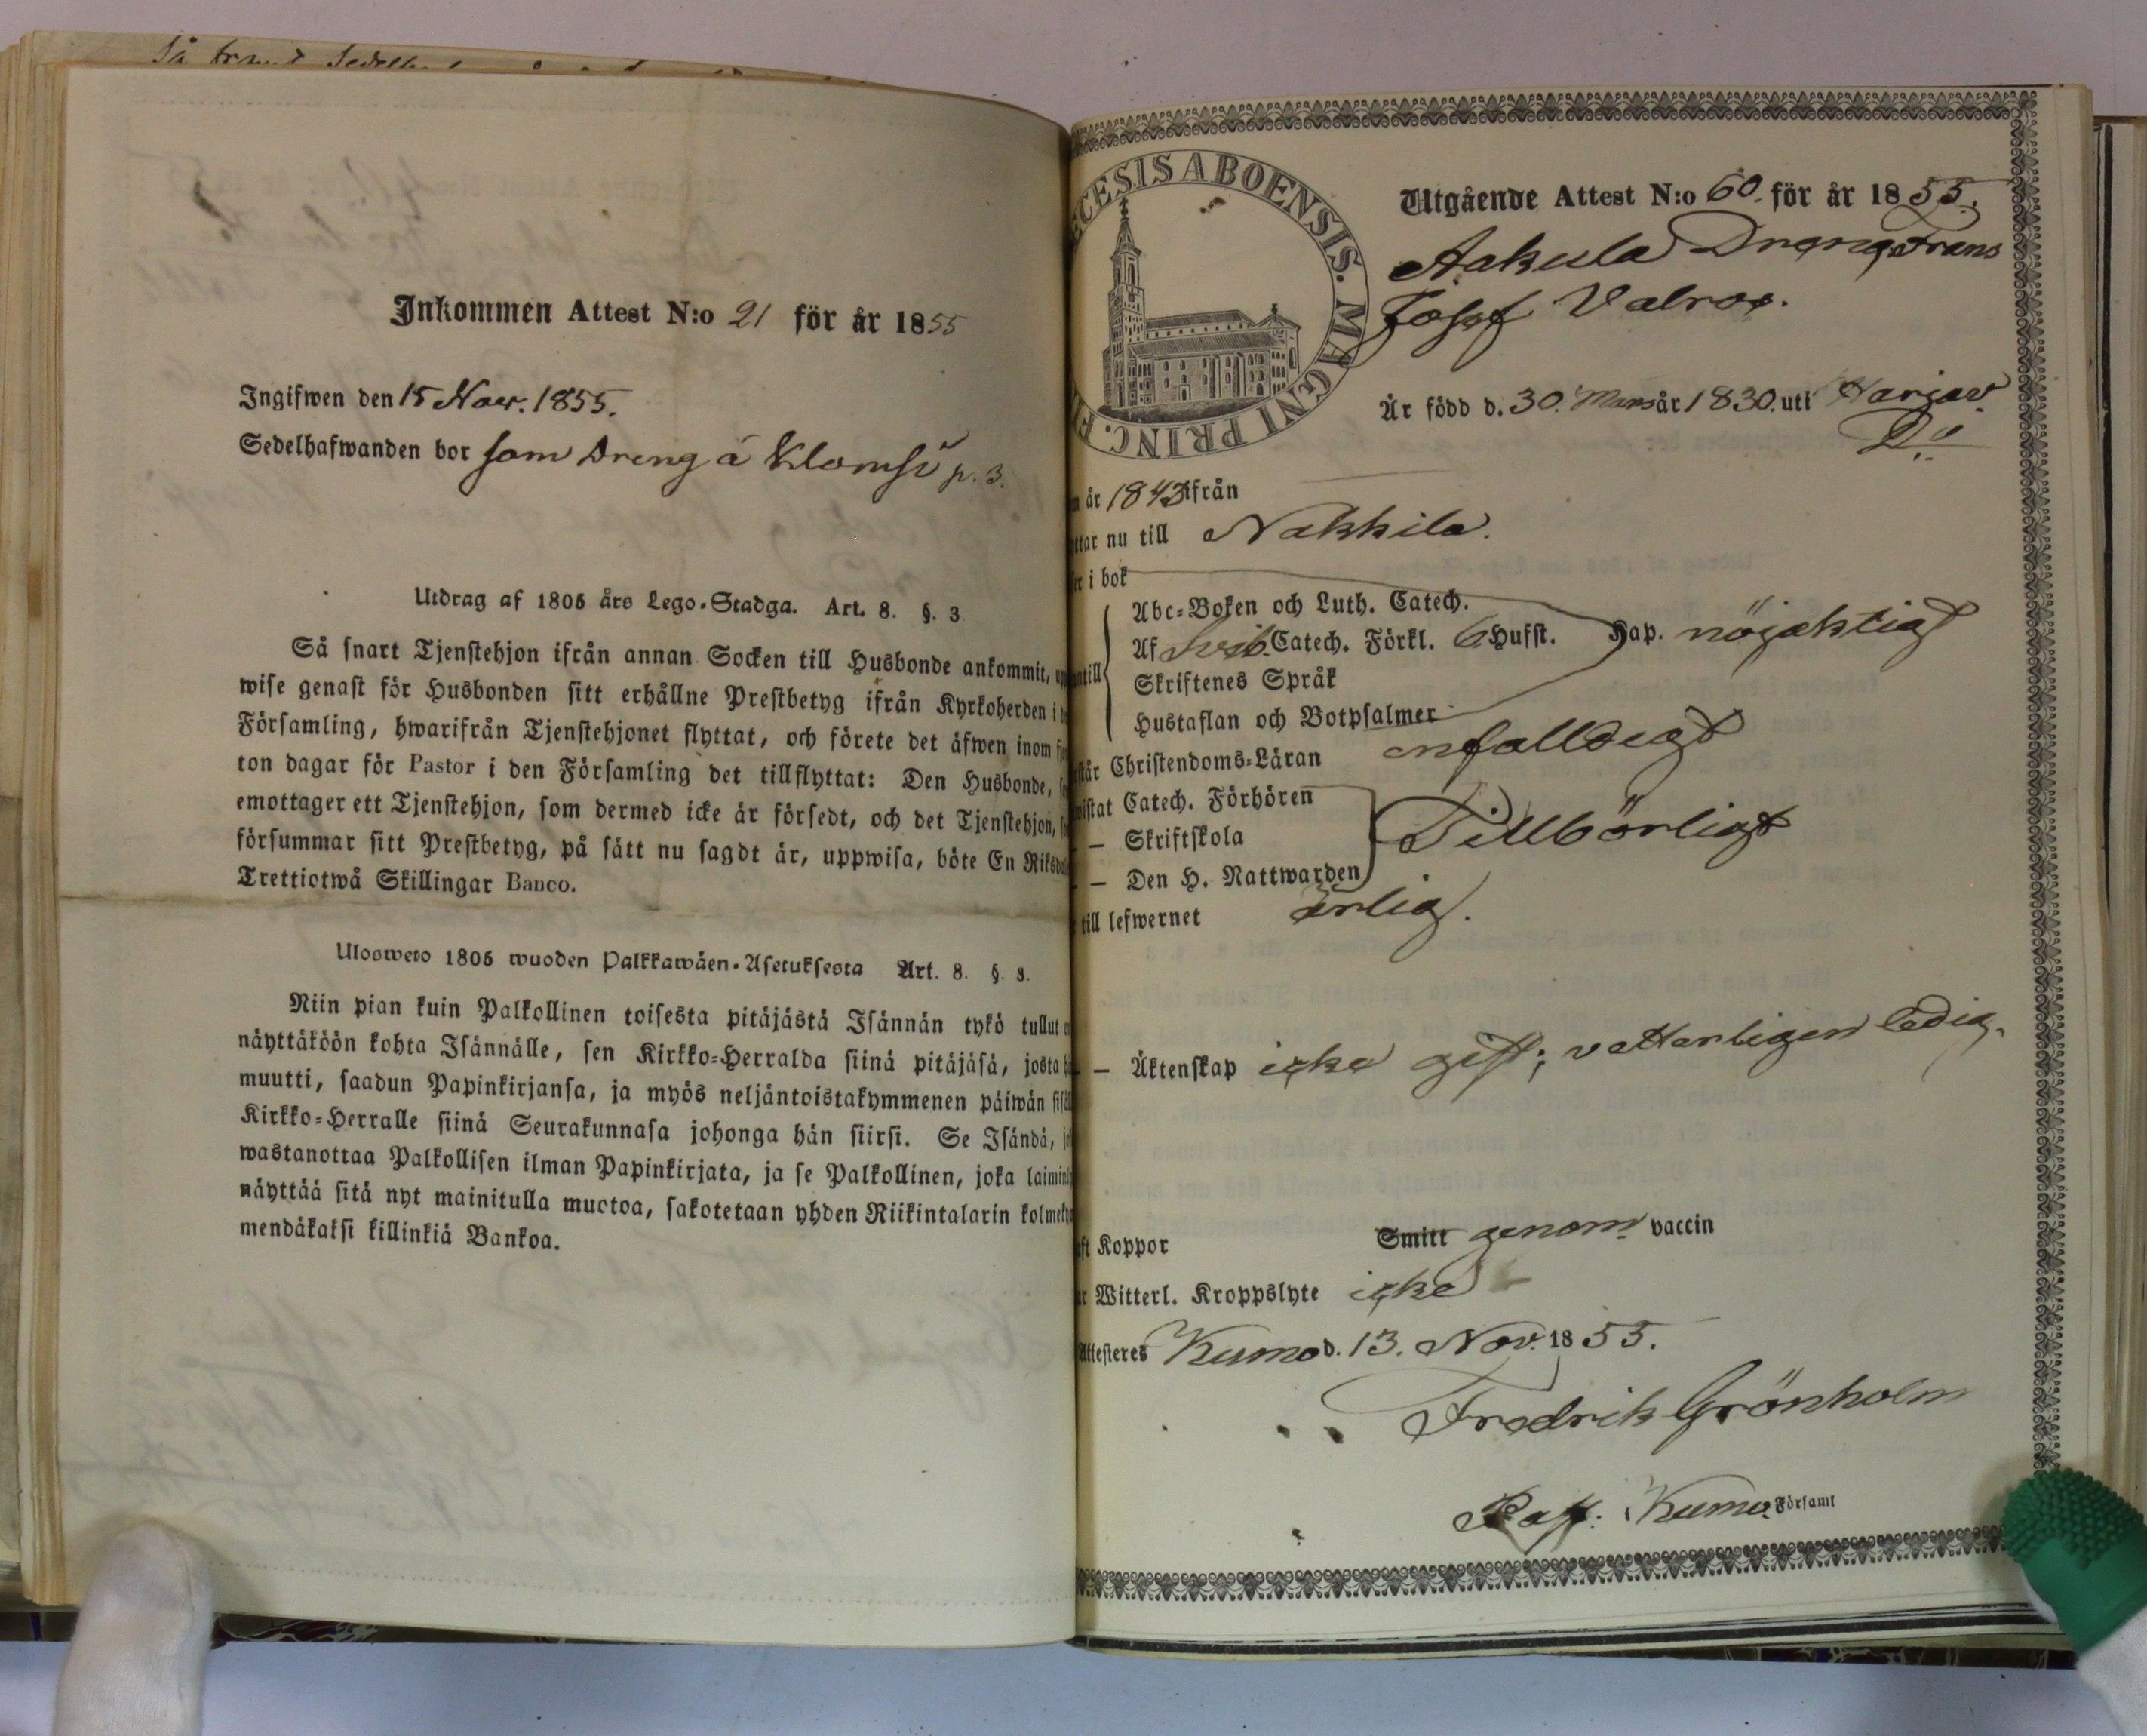 Inkommen Attest N:o 21 för år 1855
Ingifwen den 15 Nov. 1855.
Sedelhafwanden bor som Dreng å Klomsi p. 3.
Utdrag af 1805 års Lego-Stadga. Art. 8. §. 3
Så snart Tjenstehjon ifrån annan Socken till Husbonde ankommit,
wise genast för Husbonden sitt erhållne Prestbetyg ifrån Kyrkoherden i
Församling, hwarifrån Tjenstehjonet flyttat, och förete det äfwen inom
ton dagar för Pastor i den Församling det tillflyttat: Den Husbonde,
emottager ett Tjenstehjon, som dermed icke är försedt, och det Tjenstehjon,
försummar sitt Prestbetyg, på sätt nu sagdt är, uppwisa, böte En Riksd
Trettiotwå Skillingar Banco.
Ulosweto 1805 wuoden Palkkawäen-Asetuksesta Art. 8. §. 3.
Niin pian kuin Palkollinen toisesta pitäjästä Isännän tykö tullut
näyttäköön kohta Isännälle, sen Kirkko-Herralda siinä pitäjäsä, josta
muutti, saadun Papinkirjansa, ja myös neljäntoistakymmenen päiwän sisä
Kirkko-Herralle siinä Seurakunnasa johonga hän siirsi. Se Isändä,
wastanottaa Palkollisen ilman Papinkirjata, ja se Palkollinen, joka laimin
näyttää sitä nyt mainitulla muotoa, sakotetaan yhden Riikintalarin kolme
mendäkaksi killinkiä Bankoa.
CESIS ABOENSIS. MAGNI PRINC. FI
Utgående Attest N:o 60. för år 1855.
Aakula Dreng Frans
Josef Valros.
Är född d. 30. Mars år 1830. uti Harjav.
D:o
år 1843 ifrån
ttar nu till Nakkila.
i bok
Abc-Boken och Luth. Catech.
Af Sveb. Catech. Förkl. 6 Hufst. Hap. nöjaktigt
ntill Skriftenes Språk
Hustaflan och Botpsalmer
står Christendoms-Läran enfalldigt
wistat Catech. Förhören
— Skriftskola Tillbörligt
— Den H. Nattwarden
till lefwernet ärlig.
— Äktenskap icke gift; vetterligen ledig.
ft Koppor Smitt genom vaccin
Witterl. Kroppslyte icke
Attesteres Kumo d. 13. Nov. 1855.
Fredrik Grönholm
Past. Kumo Församl